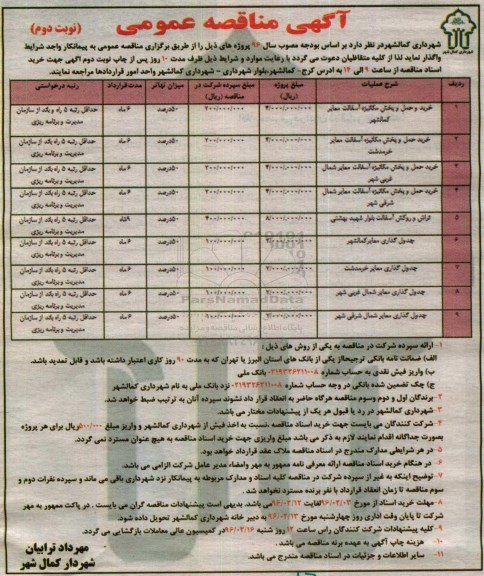 آگهی مناقصه عمومی (نوبت دوم)
شهرداری کمالشهر در نظر دارد بر اساس بودجه مصوب سال ۹۶ پروژه های ذیل را از طریق برگزاری مناقصه عمومی به پیمانکار واجد شرایط
واگذار نماید لذا از کلیه متقاضیان دعوت می گردد با رعایت موارد و شرایط ذیل ظرف مدت ۱۰ روز پس از چاپ نوبت دوم آگهی جهت خرید
اسناد مناقصه از ساعت ۹ الی ۱۴ به آدرس کرج - کمالشهر،بلوار شهرداری - شهرداری کمالشهر واحد امور قراردادها مراجعه نمایند.
ردیف شرح عملیات مبلغ پروژه (ریال) مبلغ سپرده شرکت در مناقصه (ریال) میزان تهاتر مدت قرارداد رتبه درخواستی
۱ خرید و حمل و پخش مکانیزه آسفالت معابر کمالشهر ۵۰درصد ۶ ماه حداقل رتبه ۵ راه و باند و سازمان مدیریت و برنامه ریزی
۲ خرید حمل و پخش مکانیزه آسفالت معابر خرمدشت ۵۰درصد ۶ ماه حداقل رتبه ۵ راه باند از سازمان مدیریت و برنامه ریزی
۳ خرید حمل و پخش مکانیزه آسفالت معابر شمال غربی شهر ۵۰درصد ۶ ماه حداقل رتبه ۵ راه باند از سازمان مدیریت و برنامه ریزی
۴ خرید حمل و پخش مکانیزه آسفالت معابر شمال شرقی شهر ۵۰درصد ۶ ماه حداقل رتبه ۵ راه باند از سازمان مدیریت و برنامه ریزی
۵ تراش و روکش آسفالت بلوار شهید بهشتی ۵۰درصد حداقل رتبه ۵ راه باند از سازمان مدیریت و برنامه ریزی
۶ جدول گذاری معابر کمالشهر ۵۰درصد ۶ ماه حداقل رتبه ۵ راه باند از سازمان مدیریت و برنامه ریزی
۷ جدول گذاری معابر خرمدشت ۵۰درصد ۶ ماه حداقل رتبه ۵ راه باند از سازمان مدیریت و برنامه ریزی
۸ جدول گذاری معابر شمال غربی شهر ۵۰درصد ۶ ماه حداقل رتبه ۵ راه باند از سازمان مدیریت و برنامه ریزی
۹ جدول گذاری معابر شمال شرقی شهر ۵۰درصد ۶ ماه حداقل رتبه ۵ راه باند از سازمان مدیریت و برنامه ریزی
ParsNamadData
۱- ارائه سپرده شرکت در مناقصه به یکی از روش های ذیل :
الف) ضمانت نامه بانکی ترجیحاً از یکی از بانک های استان البرز یا تهران که به مدت ۹۰ روز کاری اعتبار داشته باشد و قابل تمدید باشد.
ب) واریز فیش نقدی به حساب شماره ۰۲۱۹۳۳۶۲۱۱۰۰۸ بانک ملی
ج) چک تضمین شده بانکی در وجه حساب شماره ۰۲۱۹۳۳۶۲۱۱۰۰۸ نزد بانک ملی به نام شهرداری کمالشهر
۲- برندگان اول و دوم وسوم مناقصه هرگاه حاضر به انعقاد قرار داد نشوند سپرده آنان به ترتیب ضبط خواهد شد.
۳- شهرداری کمالشهر در رد یا قبول هر یک از پیشنهادات مختار می باشد.
۴- شرکت کنندگان می بایست جهت خرید اسناد مناقصه ،نسبت به اخذ فیش از شهرداری کمالشهر و واریز مبلغ ۵۰۰/۰۰۰ ریال برای هر پروژه
بصورت جداگانه اقدام نمایند لازم به ذکر می باشد مبلغ واریزی جهت خرید اسناد مناقصه به هیچ عنوان مسترد نمی گردد.
۵- در هر شرایطی مدارک مندرج در اسناد مناقصه ملاک عقد قرارداد خواهد بود.
۶- در هنگام خرید اسناد مناقصه ارائه معرفی نامه ممهور به مهر وامضاء مدیر عامل شرکت الزامی می باشد.
۷- توضیح اینکه به غیر از سپرده شرکت در مناقصه کلیه اسناد و مدارک مربوطه به پیمانکار نزد شهرداری باقی می ماند و سپرده نفرات دوم و
سوم مناقصه تا زمان انعقاد قرارداد با نفر برنده مسترد نخواهد شد .
۸- مهلت خرید اسناد از مورخ ۹۶/۰۲/۰۳ لغایت ۹۶/۰۲/۱۲ می باشد. بدیهی است پیشنهادات مناقصه گران می بایست . در پاکت ممهور به مهر
شرکت تا پایان وقت اداری روز چهارشنبه مورخ ۹۶/۰۲/۱۳ به دبیر خانه شهرداری کمالشهر تحویل داده شود.
۹- کلیه پیشنهادات شرکت کنندگان راس ساعت ۱۲ روز شنبه ۹۶/۰۲/۱۶ در کمیسیون عالی معاملات بازگشایی می گردد.
۱۰- هزینه چاپ آگهی به عهده برنده مناقصه می باشد .
۱۱- سایر اطلاعات و جزئیات در اسناد مناقصه مندرج می باشد.
مهرداد ترابیان
شهردار کمال شهر